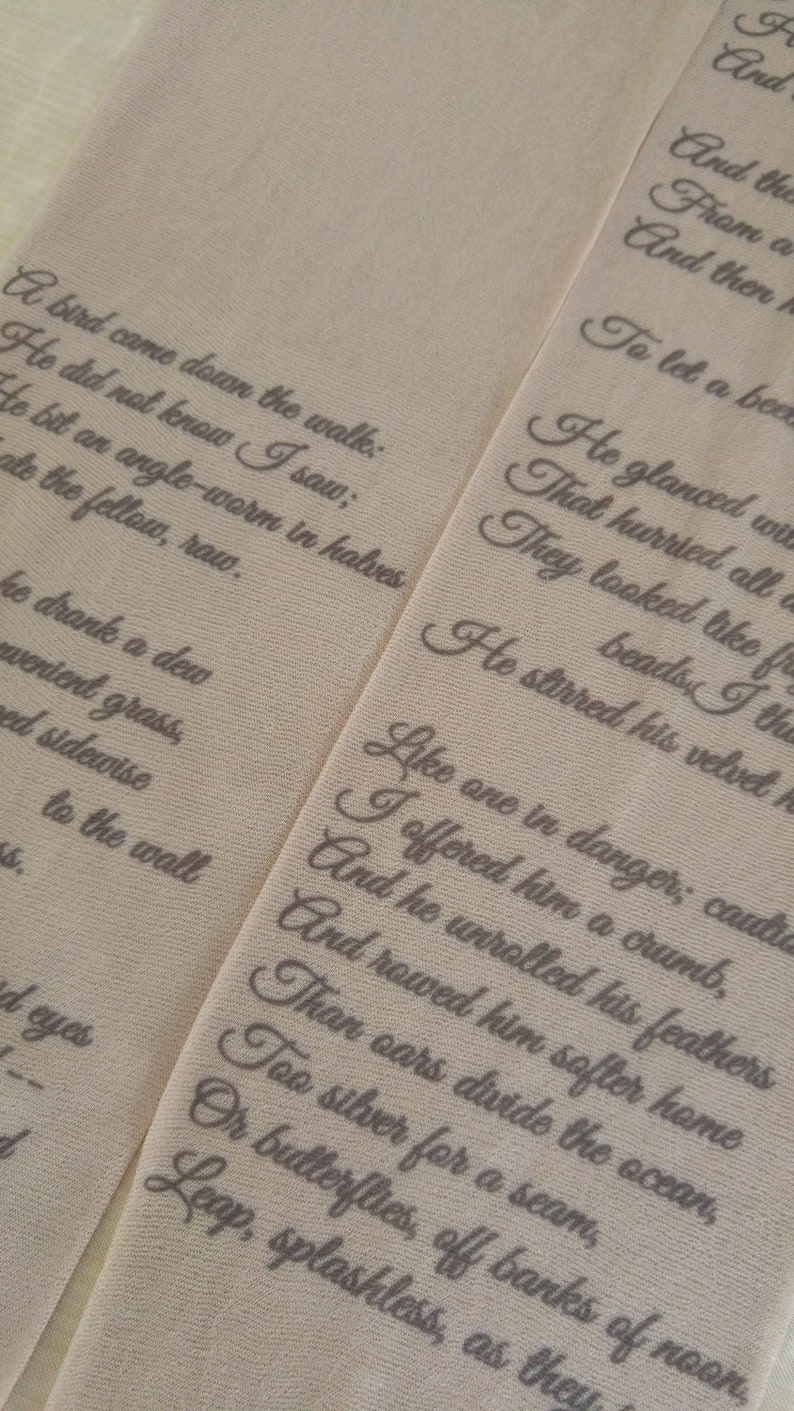 A bird came down the walk:
He did not know I saw;
He bit an angle-worm in halves
ate the fellow, raw.
he drank a dew
grass,
sidewise
to the wall
eyes
--
He
And
And
From a
And then
To let a
He glanced
That hurried all
They looked like
beads, I
He stirred his velvet
Like one in danger;
I offered him a crumb,
And he unrolled his feathers
And rowed him softer home
Than oars divide the ocean,
Too silver for a seam,
Or butterflies, off banks of noon,
Leap, splashless, as they